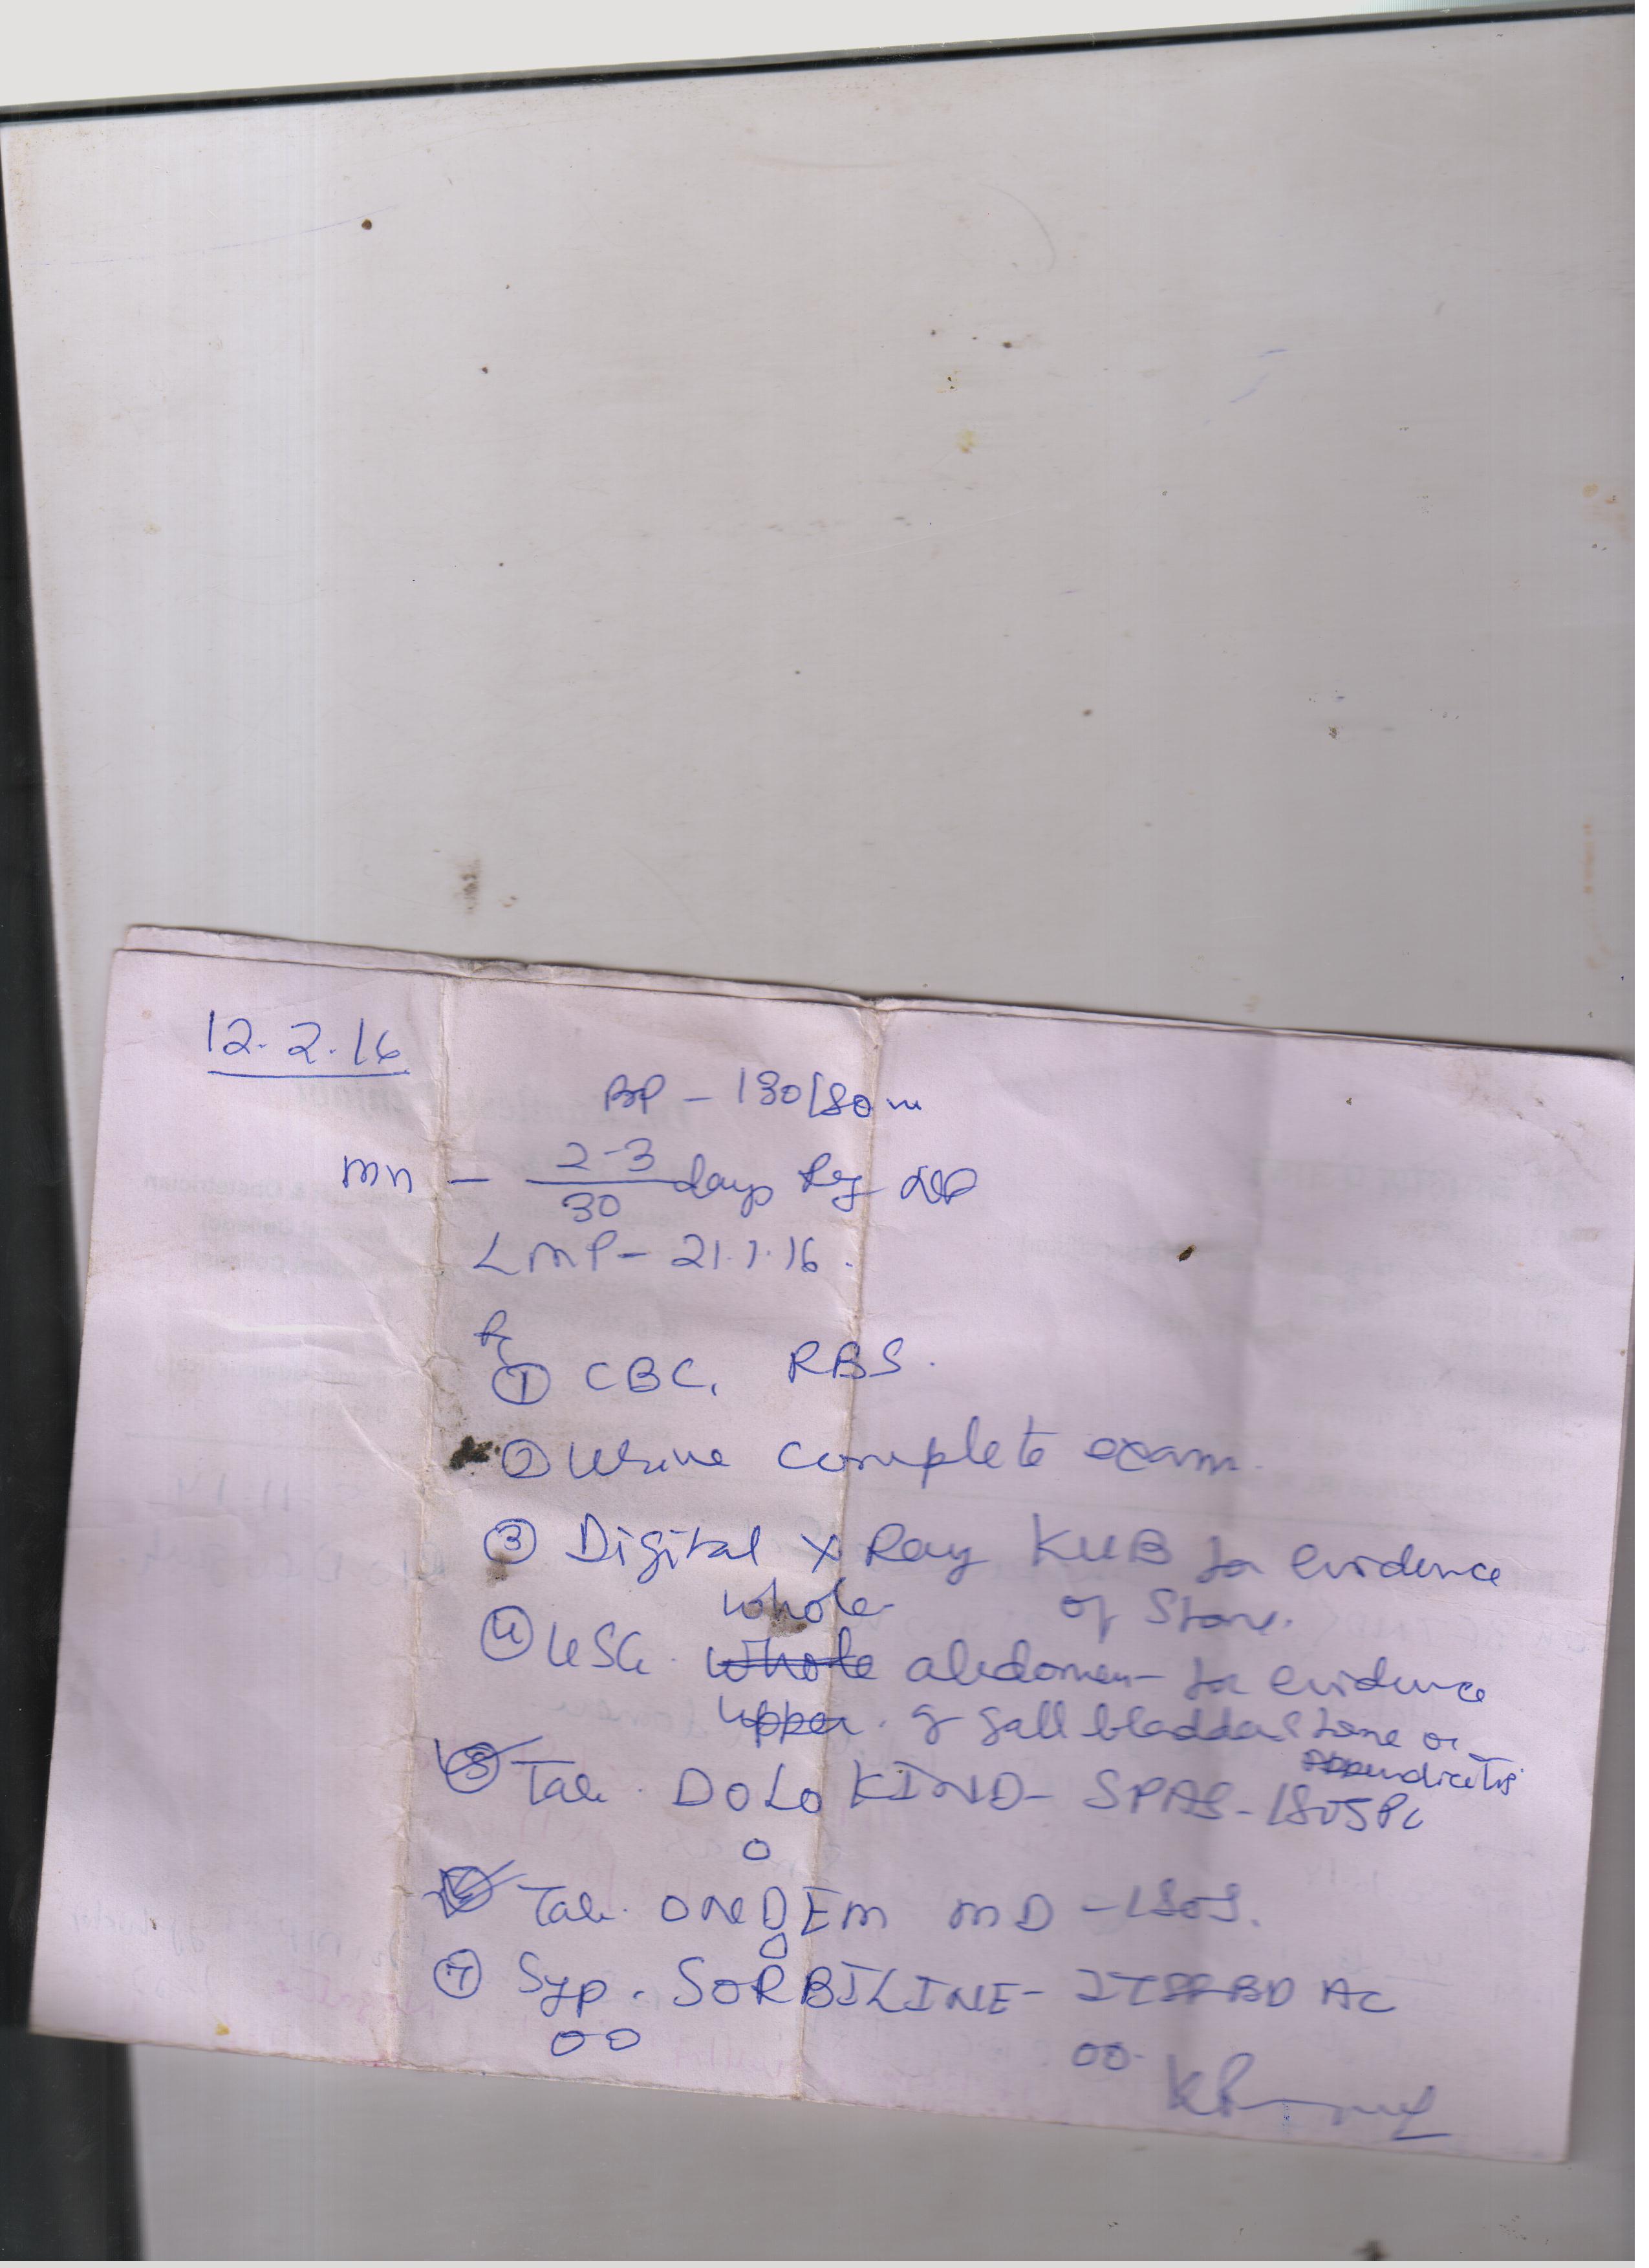 12.2.16
BP - 130/80 m
mn - 2-3/30 days Reg
LMP - 21.1.16.
Rx
① CBC, RBS.
② Urine complete exam.
③ Digital X Ray KUB for evidence
of Stone.
whole
④ USG. whole abdomen - for evidence
upper. of gall bladder stone or
appendicitis
⑤ Tab. DOLOKIND - SPAS - 1SOS PC
0
⑥ Tab. ONEDEM MD - 1SOS.
0
⑦ Syp. SORBILINE - 2TSF BD AC
00 00